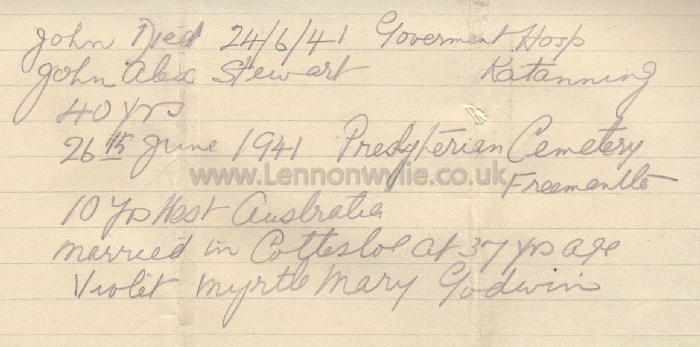 John Died 24/6/41 Goverment Hosp
John Alex Stewart Katanning
40 yrs
26th June 1941 Presbyterian Cemetery
www.Lennonwylie.co.uk
Freemantle
10 yrs West Australia
married in Cottesloe at 37 yrs age
Violet Myrtle Mary Godwin